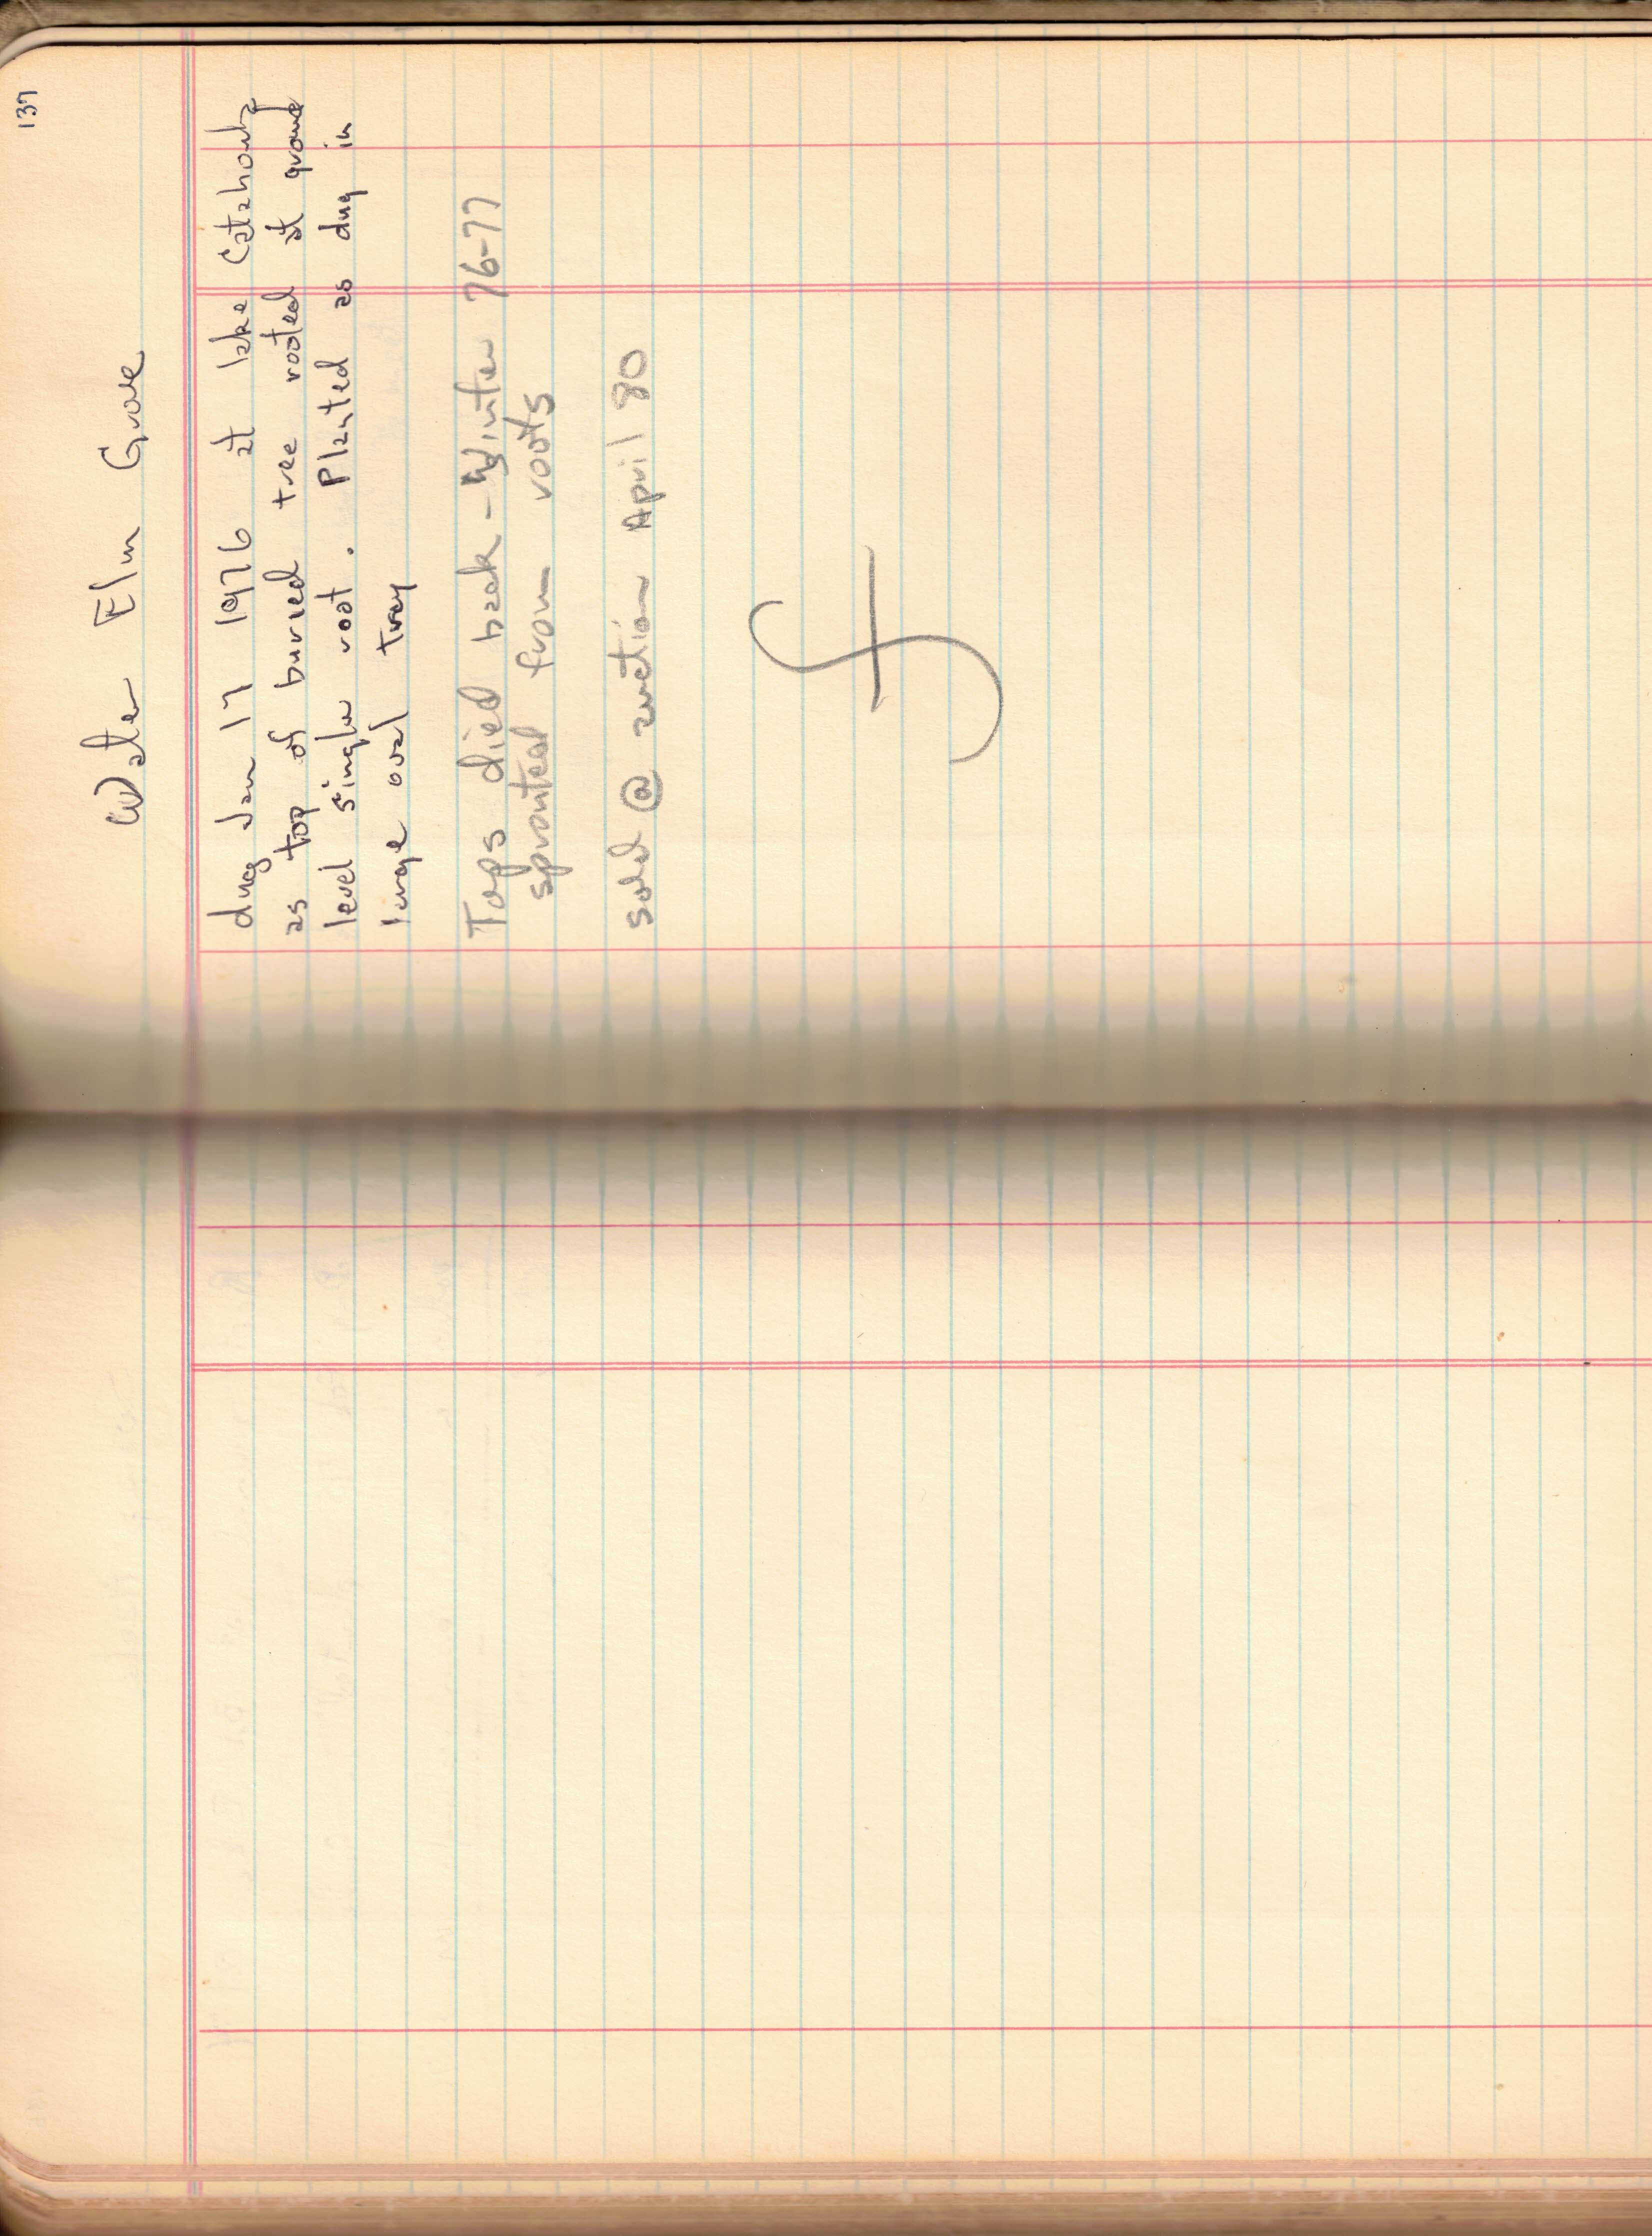 137
Water Elm Grove
dug Jan 17 1976 at lake Catahoula
as top of buried tree rooted at ground
level single root. Planted as dug in
large oval tray
Tops died back - Winter 76-77
sprouted from roots
sold @ auction April 80
f